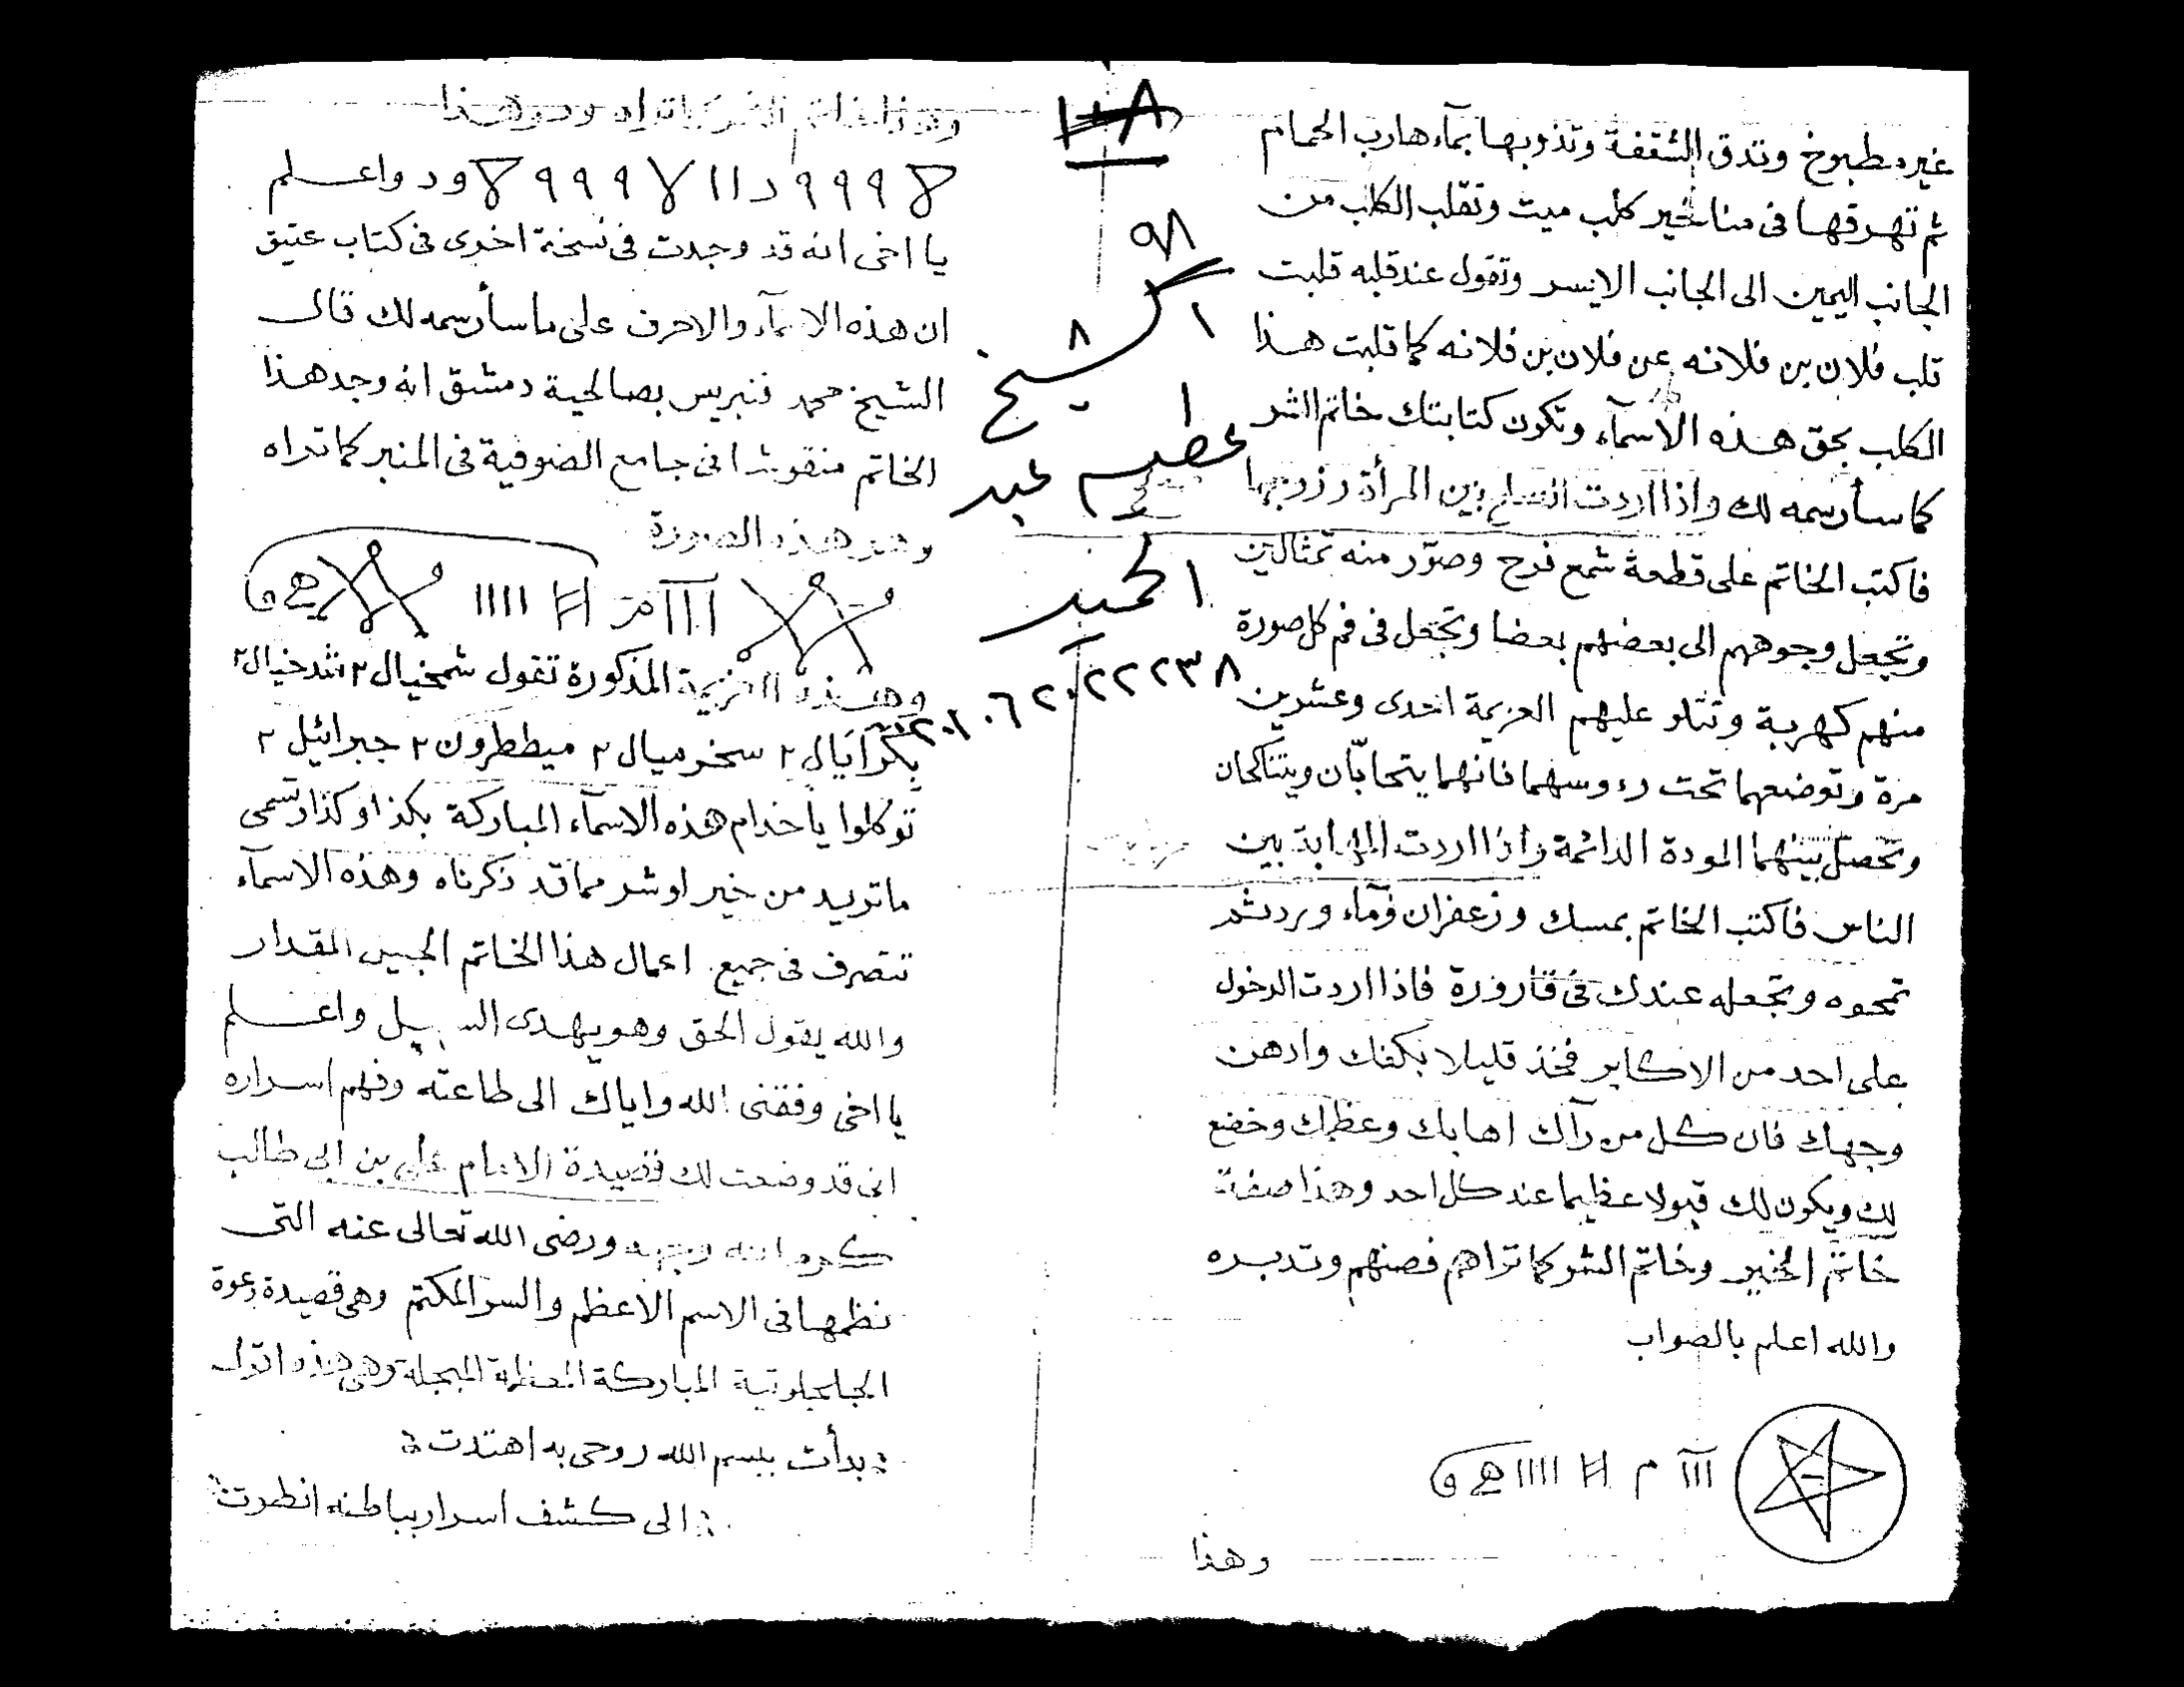 غير مطبوخ وتدق الشقفة وتذوبها بمآء هارب الحمام
ثم تهرقها فى مناخير كلب ميت وتقلب الكلب من
الجانب اليمين الى الجانب الايسر وتقول عند قلبه قلبت
قلب فلان بن فلانه عن فلان بن فلانه كما قلبت هذا
الكلب بحق هذه الاسمآء وتكون كتابتك خاتم الشر
كما سأرسمه لك واذا اردت الصلح بين المرأة وزوجها
فاكتب الخاتم على قطعة شمع فرح وصوّر منه تمثالين
وتجعل وجوههم الى بعضهم بعضا وتجعل فى فم كل صورة
منهم كهربة وتتلو عليهم العزيمة احدى وعشرين
مرة وتوضعهما تحت رءوسهما فانهما يتحابّان ويتناكحان
وتحصل بينهما المودة الدائمة واذا اردت المهابة بين
الناس فاكتب الخاتم بمسك وزعفران ومآء ورد ثم
تمحوه وتجعله عندك فى قارورة فاذا اردت الدخول
على احد من الاكابر فخذ قليلا بكفك وادهن
وجهك فان كل من رآك اهابك وعظمك وخضع
لك ويكون لك قبولا عظيما عند كل احد وهذا صفة
خاتم الخير وخاتم الشر كما تراهم فصنهم وتدبره
والله اعلم بالصواب
وهذا
٩٨
الشيخ
عبد
الحميد
وهذا خاتم الشر كما تراه وهو هذا
واعلم
يا اخى انه قد وجدت فى نسخة اخرى فى كتاب عتيق
ان هذه الاسمآء والاحرف على ما سأرسمه لك قال
الشيخ محمد قنبريس بصالحية دمشق انه وجد هذا
الخاتم منقوشا فى جامع الصوفية فى المنبر كما تراه
وهو هذه الصورة
وهذه العزيمة المذكورة تقول شمخيال ٢ شدخيال ٢
بكرآيال ٢ سخرميال ٢ ميططرون ٢ جبرائيل ٢
توكلوا يا خدام هذه الاسمآء المباركة بكذا وكذا وتسمى
ما تريد من خير او شر مما قد ذكرناه وهذه الاسمآء
تتصرف فى جميع اعمال هذا الخاتم الجليل المقدار
والله يقول الحق وهو يهدى السبيل واعلم
يا اخى وفقنى الله واياك الى طاعته وفهم اسراره
انى قد وضعت لك قصيدة الامام على بن ابى طالب
كرم الله وجهه ورضى الله تعالى عنه التى
نظمها فى الاسم الاعظم والسر المكتم وهى قصيدة دعوة
الجلجلوتية المباركة المعظمة المبجلة وهى هذه اقول
بدأت ببسم الله روحى به اهتدت
الى كشف اسرار بباطنه انطوت